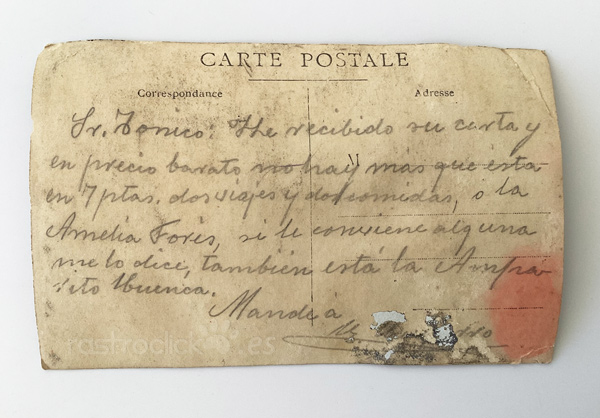 CARTE POSTALE
Correspondance
Adresse
Sr. Tonico: He recibido su carta y
en precio barato no hay mas que esta
en 7 ptas. dos viajes y dos comidas, o la
Amelia Forés, si le conviene alguna
me lo dice, también está la Ampa-
rito Cuenca.
M
Mande á